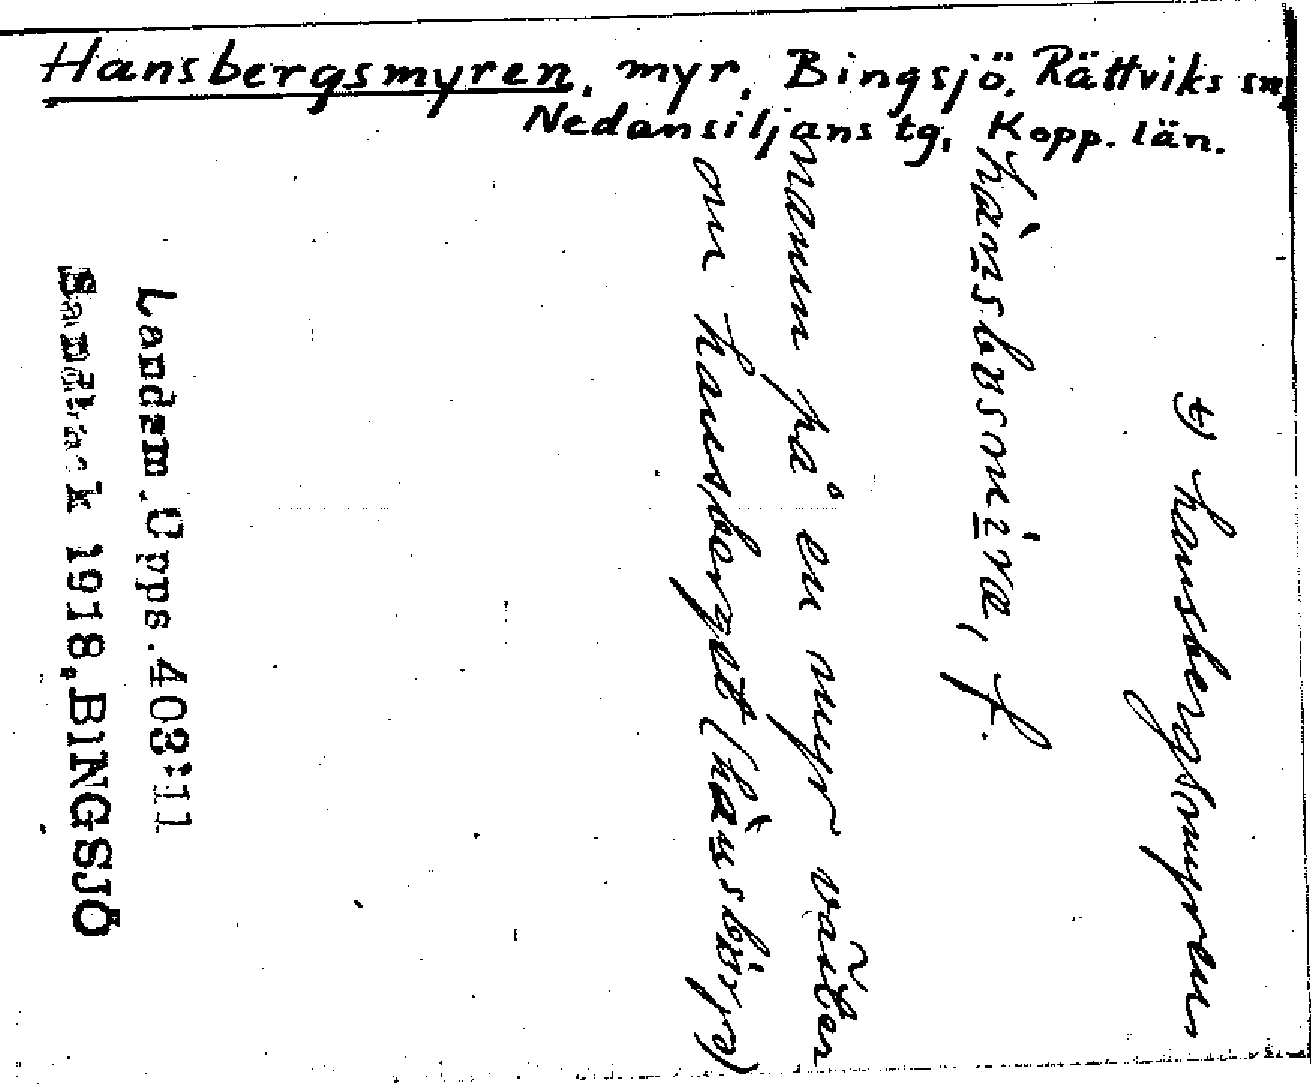 Hansbergsmyren, myr, Bingsjö, Rättviks sn,
Nedansiljans tg, Kopp. län.
t) hansbergsmyren
f.
namn på en myr väster
om hansberget
Landsm. Upps. 403:11
1918, BINGSJÖ